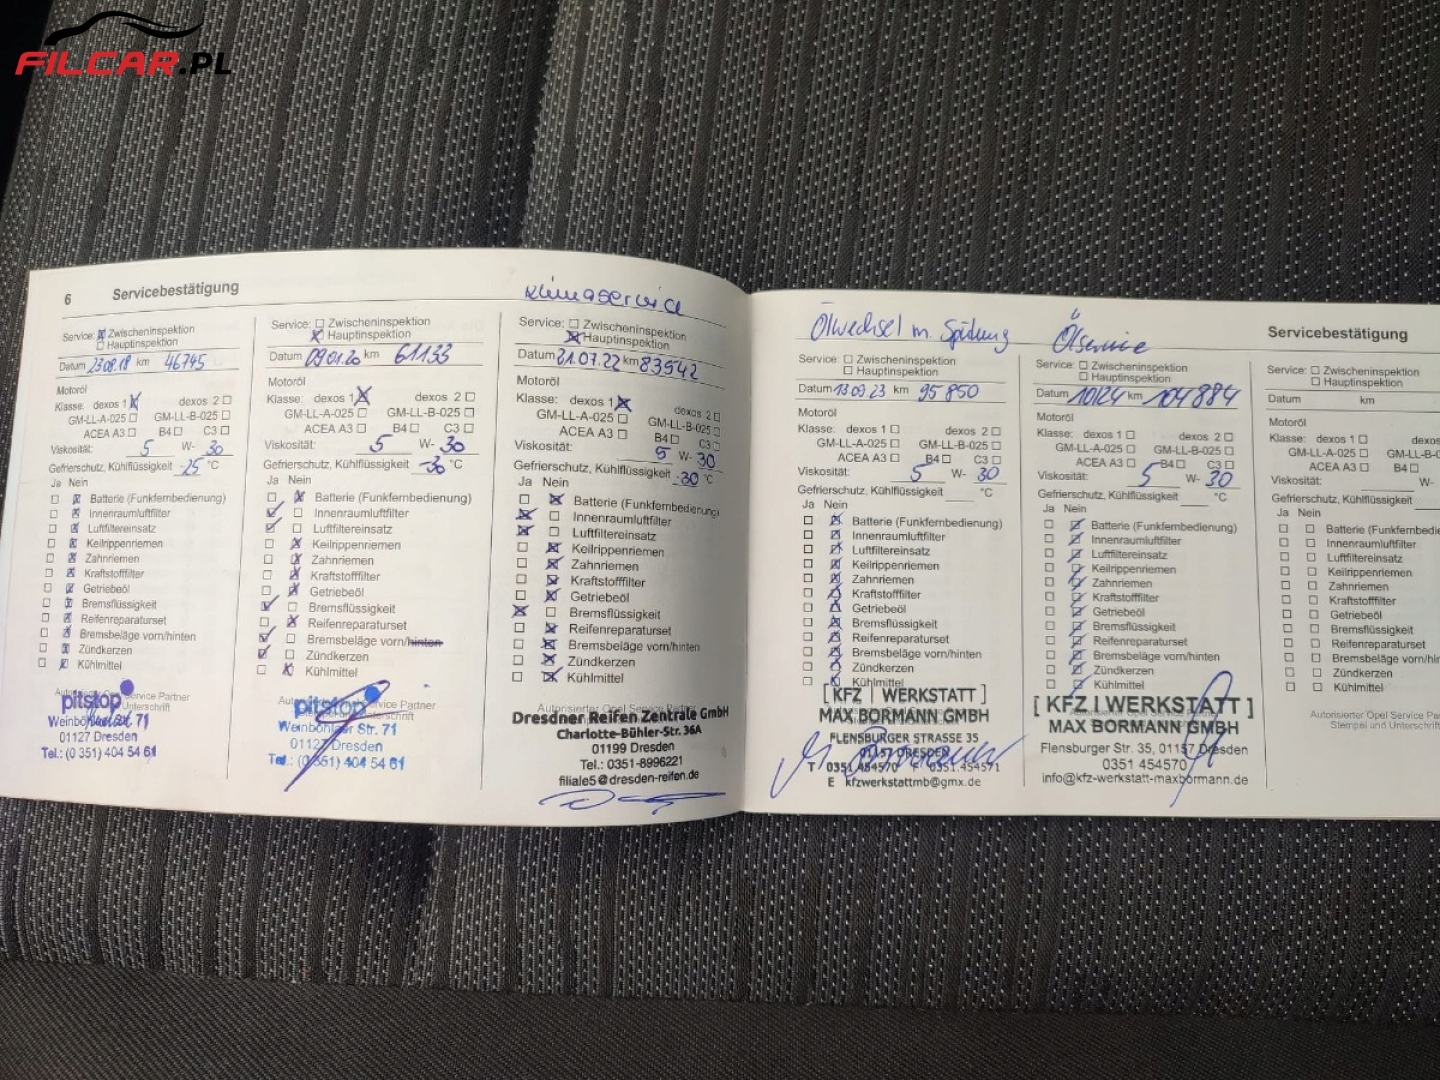 FILCAR.PL
6 Servicebestätigung
Klimaservice
Service: Zwischeninspektion
Hauptinspektion
Datum 23.08.18 km 46745
Motoröl
Klasse: dexos 1 dexos 2
GM-LL-A-025 GM-LL-B-025
ACEA A3 B4 C3
Viskosität: 5 W- 30
Gefrierschutz, Kühlflüssigkeit -25 °C
Ja Nein
Batterie (Funkfernbedienung)
Innenraumluftfilter
Luftfiltereinsatz
Keilrippenriemen
Zahnriemen
Kraftstofffilter
Getriebeöl
Bremsflüssigkeit
Reifenreparaturset
Bremsbeläge vorn/hinten
Zündkerzen
Kühlmittel
pitstop
Weinböhlaer Str. 71
01127 Dresden
Tel.: (0 351) 404 54 61
Service: Zwischeninspektion
Hauptinspektion
Datum 09.01.20 km 61133
Motoröl
Klasse: dexos 1 dexos 2
GM-LL-A-025 GM-LL-B-025
ACEA A3 B4 C3
Viskosität: 5 W- 30
Gefrierschutz, Kühlflüssigkeit -30 °C
Ja Nein
Batterie (Funkfernbedienung)
Innenraumluftfilter
Luftfiltereinsatz
Keilrippenriemen
Zahnriemen
Kraftstofffilter
Getriebeöl
Bremsflüssigkeit
Reifenreparaturset
Bremsbeläge vorn/hinten
Zündkerzen
Kühlmittel
pitstop
Weinböhlaer Str. 71
01127 Dresden
Tel.: (0 351) 404 54 61
Service: Zwischeninspektion
Hauptinspektion
Datum 21.07.22 km 83542
Motoröl
Klasse: dexos 1 dexos 2
GM-LL-A-025 GM-LL-B-025
ACEA A3 B4 C3
Viskosität: 5 W- 30
Gefrierschutz, Kühlflüssigkeit -30 °C
Ja Nein
Batterie (Funkfernbedienung)
Innenraumluftfilter
Luftfiltereinsatz
Keilrippenriemen
Zahnriemen
Kraftstofffilter
Getriebeöl
Bremsflüssigkeit
Reifenreparaturset
Bremsbeläge vorn/hinten
Zündkerzen
Kühlmittel
Autorisierter Opel Service Partner
Dresdner Reifen Zentrale GmbH
Charlotte-Bühler-Str. 36A
01199 Dresden
Tel.: 0351-8996221
filiale5@dresden-reifen.de
Ölwechsel m. Spülung
Service: Zwischeninspektion
Hauptinspektion
Datum 13.09.23 km 95850
Motoröl
Klasse: dexos 1 dexos 2
GM-LL-A-025 GM-LL-B-025
ACEA A3 B4 C3
Viskosität: 5 W- 30
Gefrierschutz, Kühlflüssigkeit °C
Ja Nein
Batterie (Funkfernbedienung)
Innenraumluftfilter
Luftfiltereinsatz
Keilrippenriemen
Zahnriemen
Kraftstofffilter
Getriebeöl
Bremsflüssigkeit
Reifenreparaturset
Bremsbeläge vorn/hinten
Zündkerzen
Kühlmittel
[ KFZ | WERKSTATT ]
MAX BORMANN GMBH
FLENSBURGER STRASSE 35
01157 DRESDEN
T 0351.454570 F 0351.454571
E kfzwerkstattmb@gmx.de
Ölservice
Service: Zwischeninspektion
Hauptinspektion
Datum 10/24 km 104884
Motoröl
Klasse: dexos 1 dexos 2
GM-LL-A-025 GM-LL-B-025
ACEA A3 B4 C3
Viskosität: 5 W- 30
Gefrierschutz, Kühlflüssigkeit °C
Ja Nein
Batterie (Funkfernbedienung)
Innenraumluftfilter
Luftfiltereinsatz
Keilrippenriemen
Zahnriemen
Kraftstofffilter
Getriebeöl
Bremsflüssigkeit
Reifenreparaturset
Bremsbeläge vorn/hinten
Zündkerzen
Kühlmittel
[ KFZ | WERKSTATT ]
MAX BORMANN GMBH
Flensburger Str. 35, 01157 Dresden
0351 454570
info@kfz-werkstatt-maxbormann.de
Servicebestätigung
Service: Zwischeninspektion
Hauptinspektion
Datum km
Motoröl
Klasse: dexos 1 dexos
GM-LL-A-025 GM-LL-B-0
ACEA A3 B4
Viskosität: W-
Gefrierschutz, Kühlflüssigkeit
Ja Nein
Batterie (Funkfernbedie
Innenraumluftfilter
Luftfiltereinsatz
Keilrippenriemen
Zahnriemen
Kraftstofffilter
Getriebeöl
Bremsflüssigkeit
Reifenreparaturset
Bremsbeläge vorn/hinten
Zündkerzen
Kühlmittel
Autorisierter Opel Service Pa
Stempel und Unterschrift